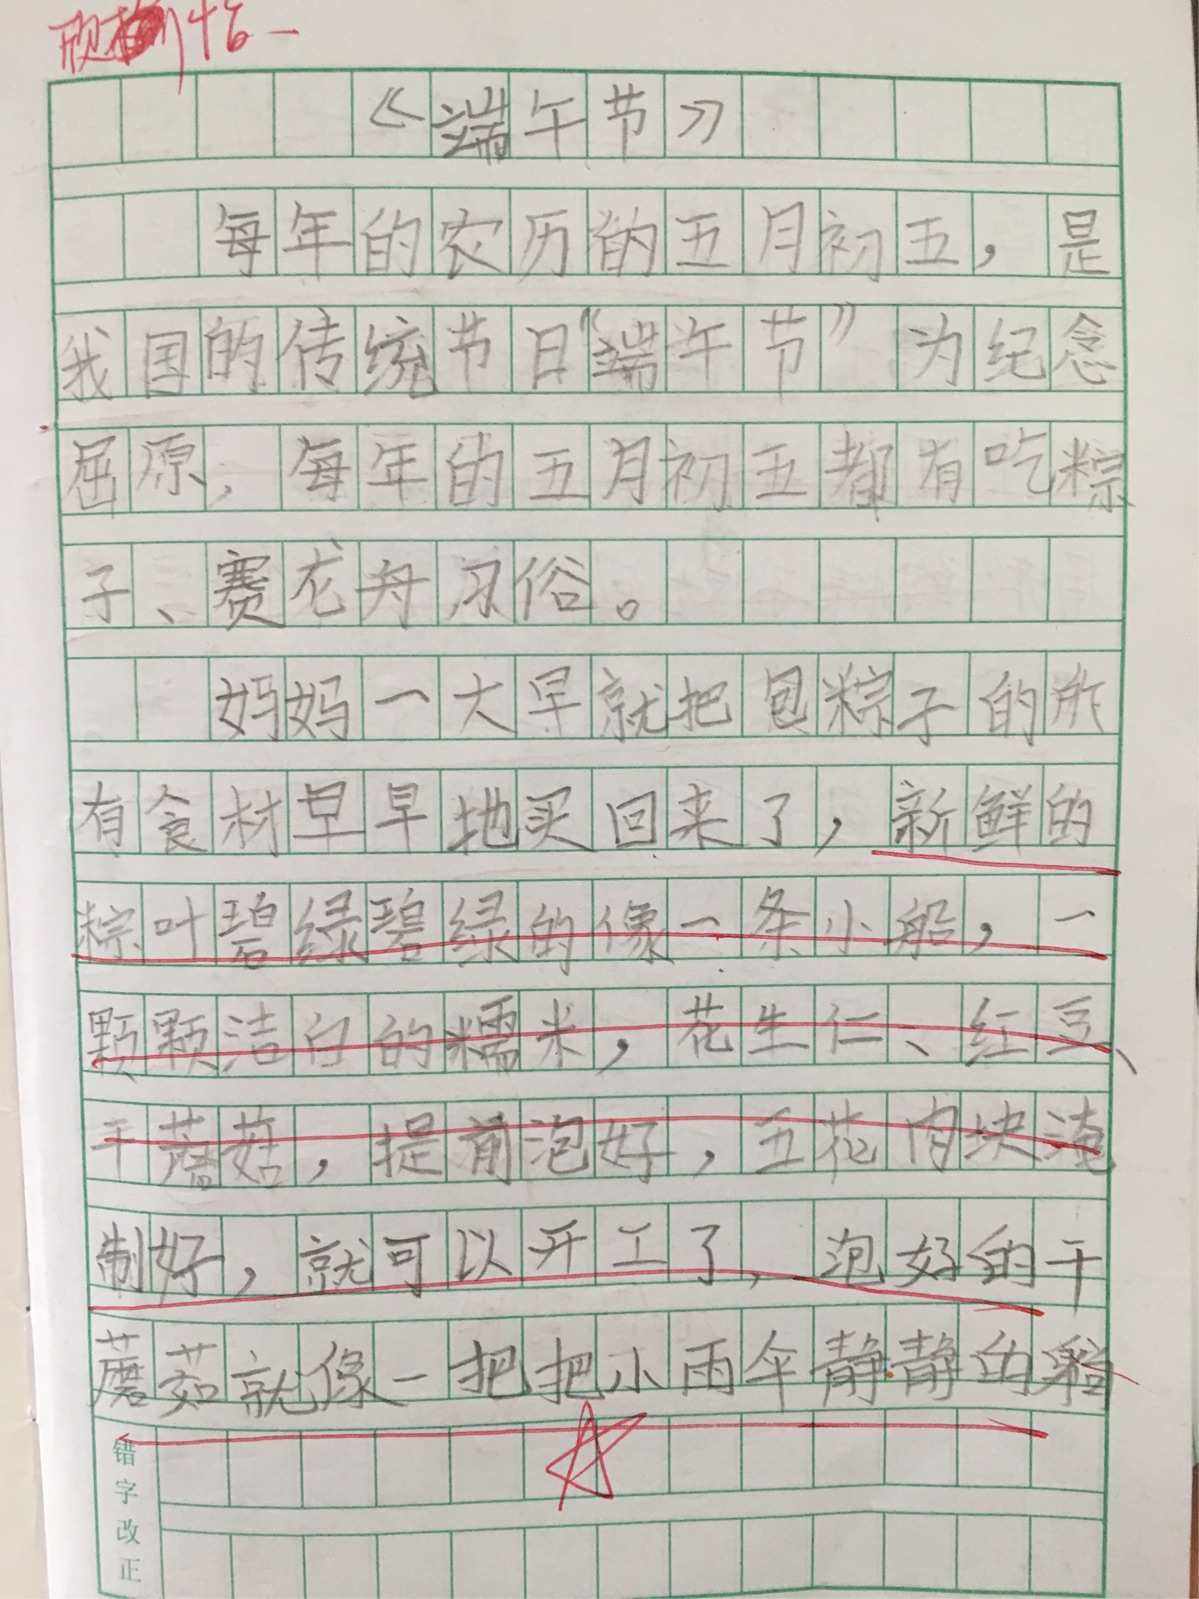 《端午节》
每年的农历的五月初五，是
我国的传统节日“端午节”为纪念
屈原，每年的五月初五都有吃粽
子、赛龙舟习俗。
妈妈一大早就把包粽子的所
有食材早早地买回来了，新鲜的
粽叶碧绿碧绿的像一条小船，一
颗颗洁白的糯米，花生仁、红豆、
干蘑菇，提前泡好，五花肉块淹
制好，就可以开工了，泡好的干
蘑茹就像一把把小雨伞静静的
错字改正